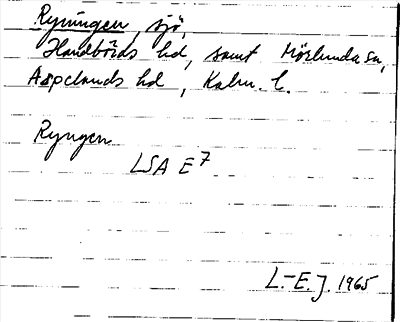 Ryningen, sjö,
Handbörds hd, samt Mörlunda sn,
Aspelands hd, Kalm. l.
Ryngen
LSA E7
L.-E. J. 1965